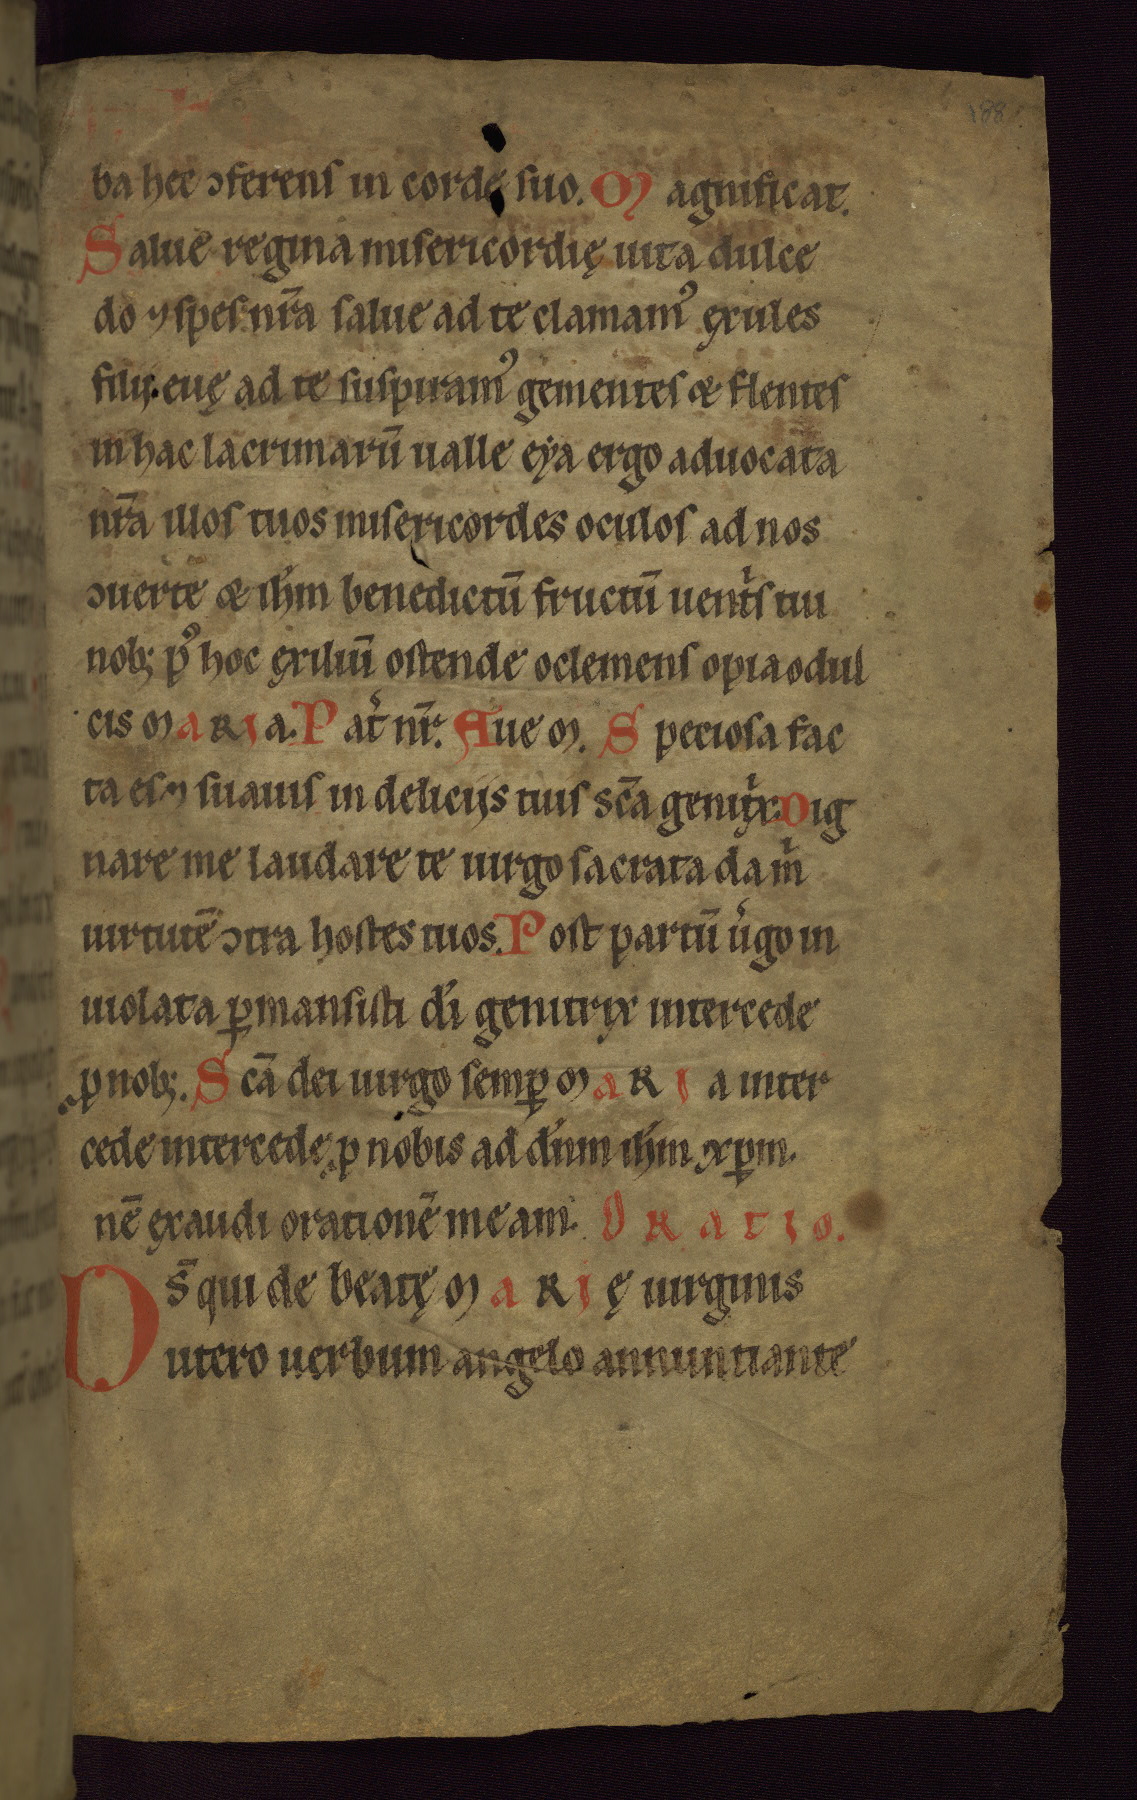 188
ba hec ɔferens in corde suo. Magnificat.
Salue regina misericordię uita dulce
do ⁊ spes nr̄a salue ad te clamamꝰ ęxules
filij euę ad te suspiramꝰ gementes & flentes
in hac lacrimarū ualle eẏa ergo aduocata
nr̄a illos tuos misericordes oculos ad nos
ɔuerte & ihm̄ benedictū fructū uentͥs tui
nobꝫ pꝰ hoc ęxiliū ostende oclemens opia odul
cis MARIA. Pat̾ nr̄. Aue M. Speciosa fac
ta es ⁊ suauis in delicijs tuis sc̄a genitͥx. Dig
nare me laudare te uirgo sacrata da mͥ
uirtutē ɔtra hostes tuos. Post partū u̾go in
uiolata ꝑmansisti dī genitrix intercede
ꝓ nobꝫ. Sc̄a dei uirgo semꝑ MARIA inter
cede intercede ꝓ nobis ad dn̄m ihm̄ xp̄m.
nē ęxaudi orationē meam. ORATIO.
Ds̄ qui de beatę MARIę uirginis
utero uerbum angelo annuntiante